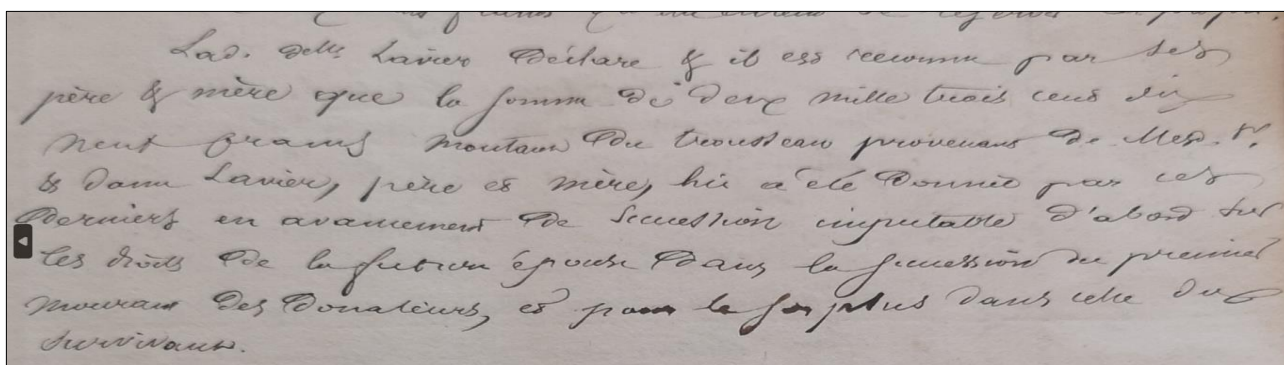 Lad. delle Lavier déclare & il est reconnu par ses
père & mère que la somme de deux mille trois cent dix
neuf francs montant du trousseau provenant de Mesd. Sr.
& dame Lavier, père et mère, lui a été donnée par ces
derniers en avancement de succession imputable d'abord sur
les droits de la future épouse dans la succession du premier
mourant des donateurs, et pour le surplus dans celle du
survivant.